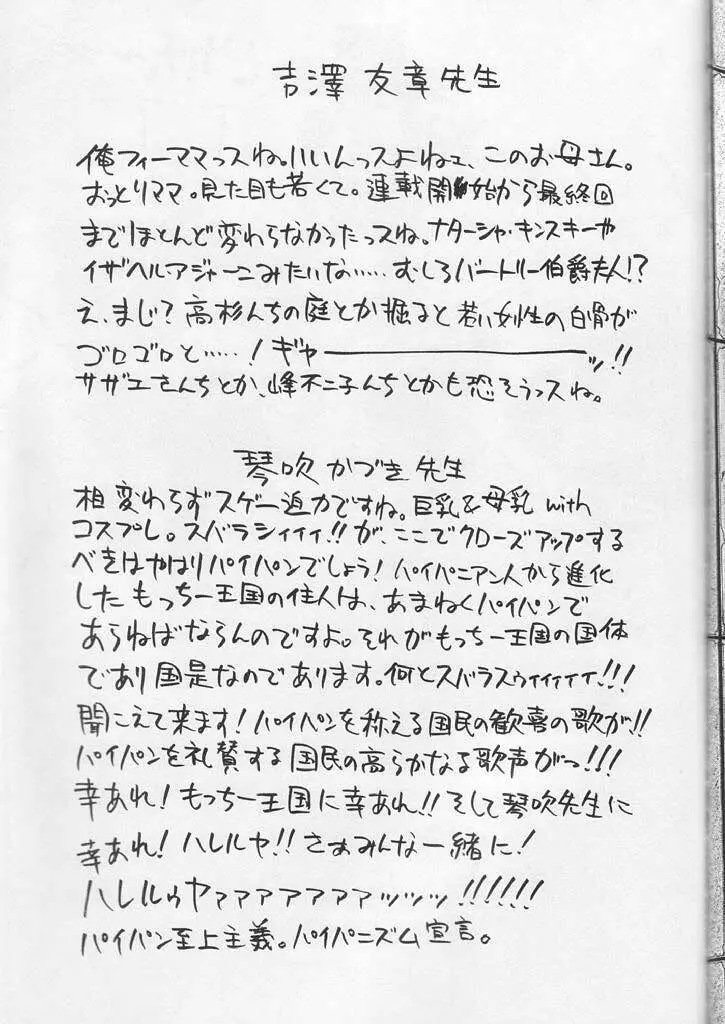 吉澤 友章先生
俺フィーママっスね。いいんっスよねェ、このお母さん。
おっとりママ。見た目も若くて。連載開始から最終回
までほとんど変わらなかったっスね。ナターシャ・キンスキーや
イザベル・アジャーニみたいな……むしろバートリー伯爵夫人!?
え、まじ?高杉んちの庭とか掘ると若い女性の白骨が
ゴロゴロと……!ギャーーーーーッ!!
サザエさんちとか、峰不二子んちとかも恐そうっスね。
琴吹かづき先生
相変わらずスゲー迫力ですね。巨乳&母乳with
コスプレ。スバラシィィィ!!が、ここでクローズアップする
べきはやはりパイパンでしょう!パイパニアン人から進化
したもっちー王国の住人は、あまねくパイパンで
あらねばならんのですよ。それがもっちー王国の国体
であり国是なのであります。何とスバラスゥィィィィィ!!!
聞こえて来ます!パイパンを称える国民の歓喜の歌が!!
パイパンを礼賛する国民の高らかなる歌声がっ!!!
幸あれ!もっちー王国に幸あれ!!そして琴吹先生に
幸あれ!ハレルヤ!!さぁみんな一緒に!
ハレルゥヤァァァァァァァッッッ!!!!!!
パイパン至上主義。パイパニズム宣言。